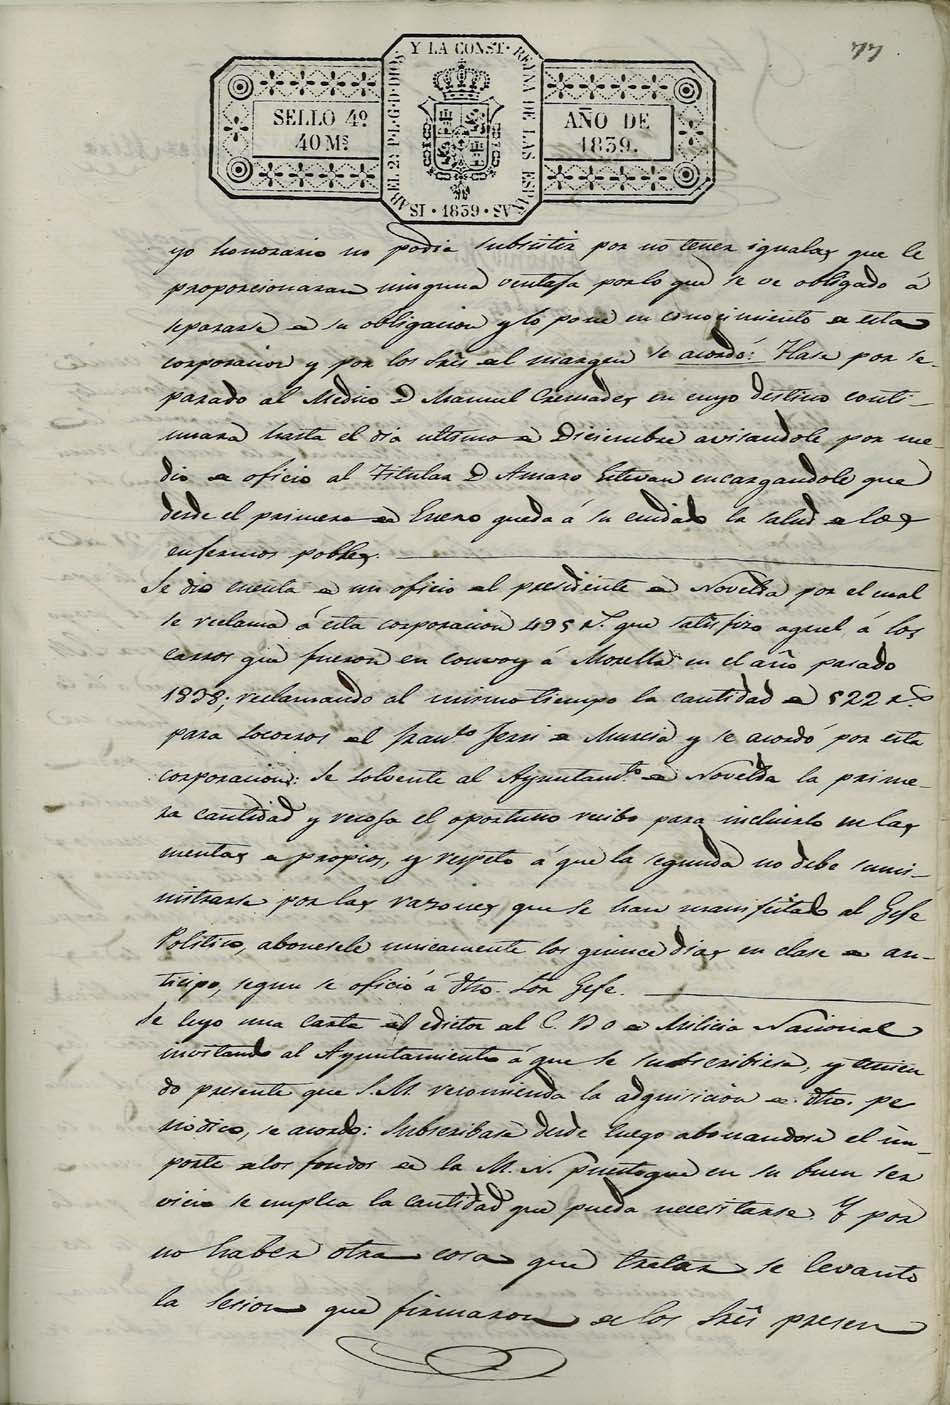 77
Y LA CONST. REYNA DE LAS ESPAÑAS · 1839 · ISABEL 2ª P. L. G. D. DIOS
SELLO 4º 40 Ms
AÑO DE 1839.
yo honorario no podia subsistir por no tener igualas que le
proporcionaran ninguna ventaja por lo que se ve obligado á
separarse de su obligacion y lo pone en conocimiento de esta
corporacion y por los Sres del margen se acordó: Hase por se-
parado al Medico D Manuel Cremades en cuyo destino conti-
nuara hasta el dia ultimo de Diciembre avisandole por me-
dio de oficio al Titular D Amaro Estevan encargandole que
desde el primero de Enero queda á su cuidado la salud de los
enfermos pobres.
Se dio cuenta de un oficio del presidente de Novelda por el cual
se reclama á esta corporacion 495 r.s que satisfizo aquel á los
carros que fueron en convoy á Morella en el año pasado
1838; reclamando al mismo tiempo la cantidad de 522 r.s
para socorros del de Murcia y se acordó por esta
corporacion: Se solvente al Ayuntam.to de Novelda la prime-
ra cantidad y recoja el oportuno recibo para incluirlo en las
cuentas de propios, y respeto á que la segunda no debe sumi-
nistrarse por las razones que se han manifestado al Gefe
Politico, abonesele unicamente los quince dias en clase de an-
ticipo, segun se ofició á dho. Sor Gefe.
Se leyo una carta del editor del C. D o de Milicia Nacional
invitando al Ayuntamiento á que se subscribiera, y tenien
do presente que S.M. recomienda la adquisicion de dho. pe
riodico, se acordo: Subscribase desde luego abonandose el im-
porte de los fondos de la M. N. puesto que en su buen ser
vicio se emplea la cantidad que pueda necesitarse. Y por
no haber otra cosa que tratar se levanto
la sesion que firmaron de los Sres presen